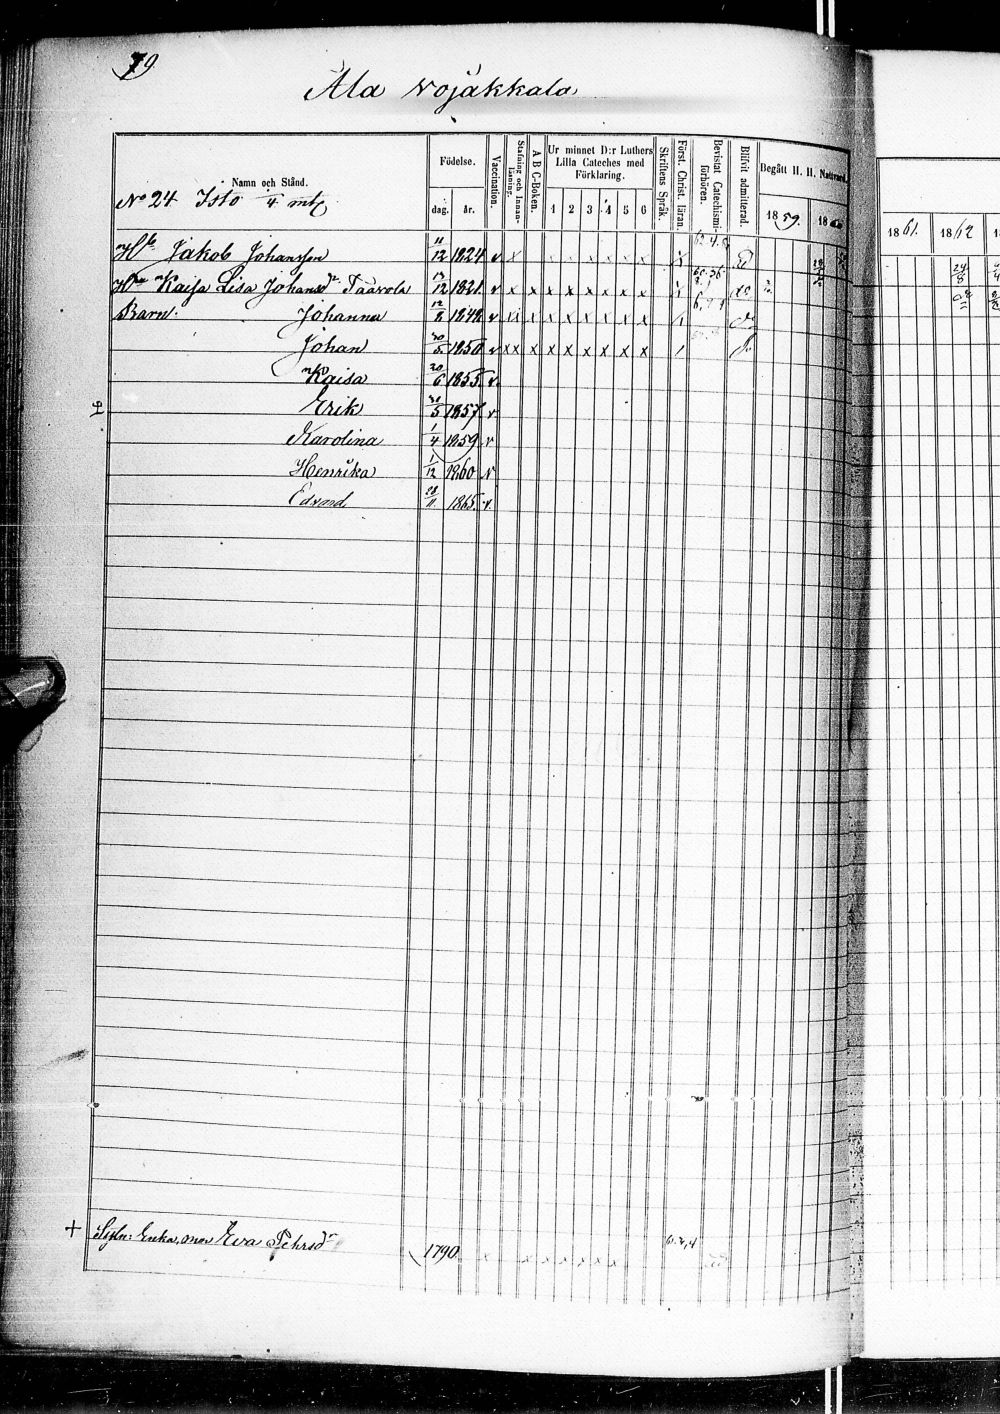 79
Ala vojakkala
Namn och Stånd.
Födelse.
dag. år.
Vaccination.
Stafning och Innanläsning.
A B C-Boken.
Ur minnet D:r Luthers Lilla Cateches med Förklaring.
1 2 3 4 5 6
Skriftens Språk.
Först. Christ. läran.
Bevistat Catechismiförhören.
Blifvit admitterad.
Begått H. H. Nattvard.
1859. 1860
1861. 1862
No 24 Isto 1/4 mtl
Jakob Johansson 11/12 1824 v x
Kaisa Lisa Johansdr Täävola 12 1821. v x x x x x x x x
Barn. Johanna 12/8 1848 v x x x x x x x x
Johan 30/5 1850 v x x x x x x x x x
Kaisa 20/6 1855. v.
Erik 5 1857. v
Karolina 1/4 1859 v
Henrika 1/12 1860 v
Edvard 28/11 1865. v.
+ Enka, Eva Pehrsdr 1790